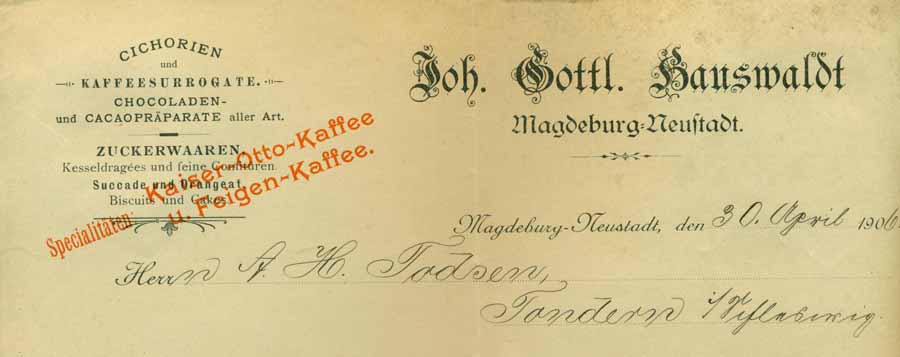 CICHORIEN
und
KAFFEESURROGATE.
CHOCOLADEN-
und CACAOPRÄPARATE aller Art.
ZUCKERWAAREN,
Kesseldragées und feine Confitüren
Succade und Orangeat,
Biscuits und Cakes.
Specialitäten: Kaiser-Otto-Kaffee
u. Feigen-Kaffee.
Joh. Gottl. Hauswaldt
Magdeburg-Neustadt.
Magdeburg-Neustadt, den 30. April 1906.
Herrn A. H. Todsen,
Tondern i/Schleswig.